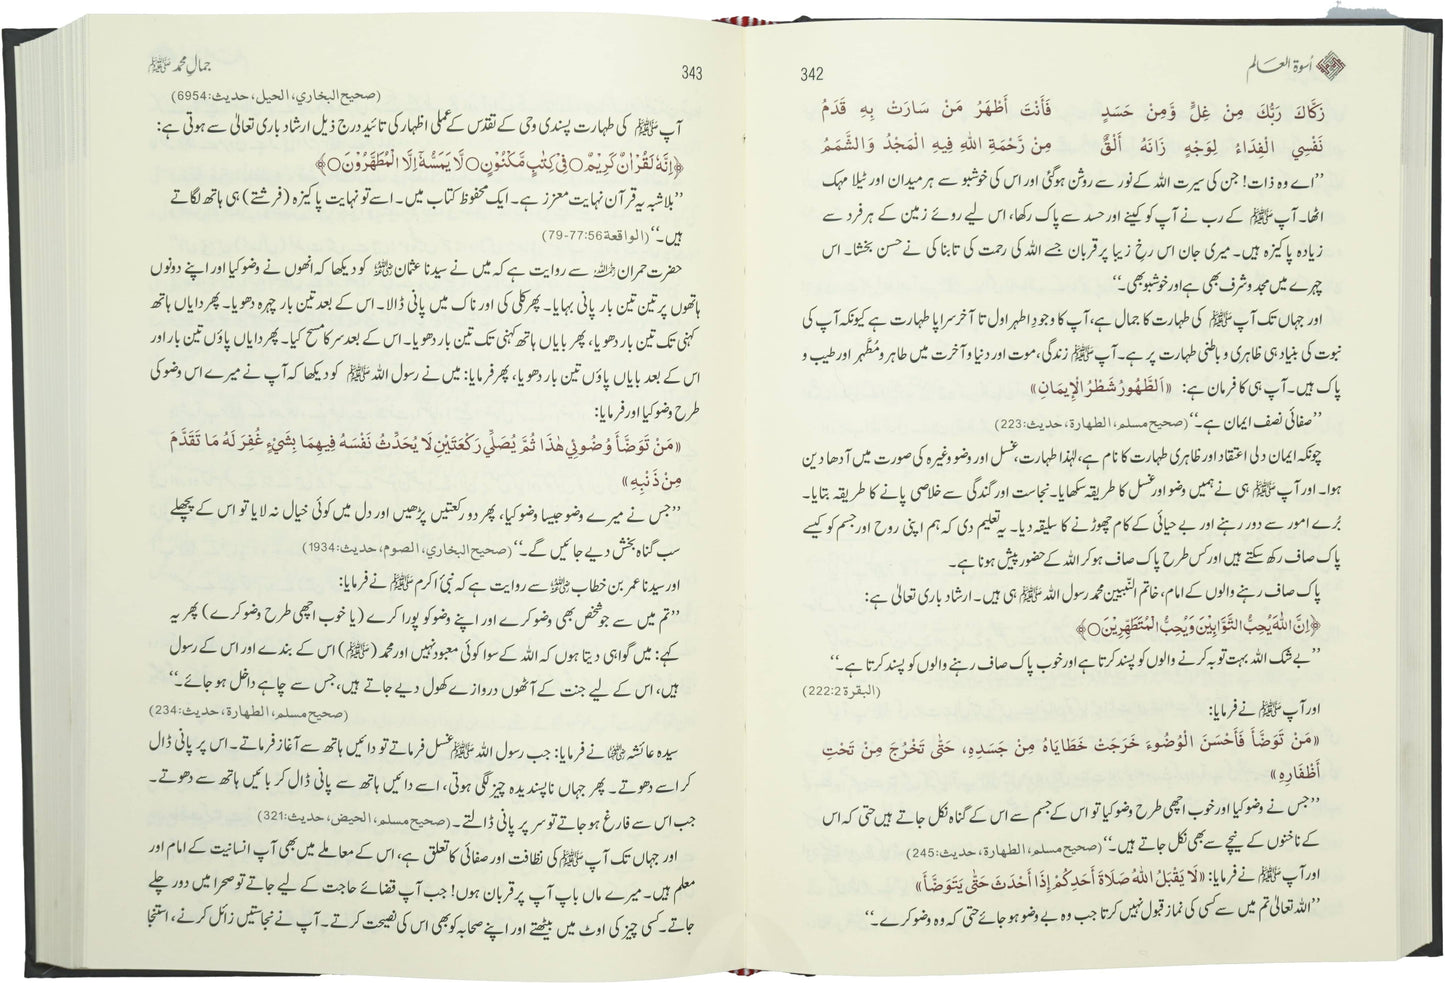 اُسوۃ العالم
342
زَكَّاكَ رَبُّكَ مِنْ غِلٍّ وَّمِنْ حَسَدٍ فَأَنْتَ أَطْهَرُ مَنْ سَارَتْ بِهِ قَدَمُ
نَفْسِي الْفِدَاءُ لِوَجْهٍ زَانَهُ أَلَقٌ مِنْ رَّحْمَةِ اللهِ فِيهِ الْمَجْدُ وَالشَّمَمُ
’’اے وہ ذات! جن کی سیرت اللہ کے نور سے روشن ہوگئی اور اس کی خوشبو سے ہر میدان اور ٹیلا مہک
اٹھا۔ آپ ﷺ کے رب نے آپ کو کینے اور حسد سے پاک رکھا، اس لیے روئے زمین کے ہر فرد سے
زیادہ پاکیزہ ہیں۔ میری جان اس رخِ زیبا پر قربان جسے اللہ کی رحمت کی تابناکی نے حسن بخشا۔ اس
چہرے میں مجد و شرف بھی ہے اور خوشبو بھی۔‘‘
اور جہاں تک آپ ﷺ کی طہارت کا جمال ہے، آپ کا وجودِ اطہر اول تا آخر سراپا طہارت ہے کیونکہ آپ کی
نبوت کی بنیاد ہی ظاہری و باطنی طہارت پر ہے۔ آپ ﷺ زندگی، موت اور دنیا و آخرت میں طاہر و مُطَہر اور طیب و
پاک ہیں۔ آپ ہی کا فرمان ہے: «اَلطُّهُورُ شَطْرُ الْإِيمَانِ»
’’صفائی نصف ایمان ہے۔‘‘ (صحيح مسلم، الطهارة، حديث:223)
چونکہ ایمان دلی اعتقاد اور ظاہری طہارت کا نام ہے، لہٰذا طہارت، غسل اور وضو وغیرہ کی صورت میں آدھا دین
ہوا۔ اور آپ ﷺ ہی نے ہمیں وضو اور غسل کا طریقہ سکھایا۔ نجاست اور گندگی سے خلاصی پانے کا طریقہ بتایا۔
بُرے امور سے دور رہنے اور بے حیائی کے کام چھوڑنے کا سلیقہ دیا۔ یہ تعلیم دی کہ ہم اپنی روح اور جسم کو کیسے
پاک صاف رکھ سکتے ہیں اور کس طرح پاک صاف ہو کر اللہ کے حضور پیش ہونا ہے۔
پاک صاف رہنے والوں کے امام، خاتم النَّبیین محمد رسول اللہ ﷺ ہی ہیں۔ ارشاد باری تعالیٰ ہے:
﴿اِنَّ اللّٰهَ يُحِبُّ التَّوَّابِيْنَ وَيُحِبُّ الْمُتَطَهِّرِيْنَ○﴾
’’بے شک اللہ بہت توبہ کرنے والوں کو پسند کرتا ہے اور خوب پاک صاف رہنے والوں کو پسند کرتا ہے۔‘‘
(البقرة 2:222)
اور آپ ﷺ نے فرمایا:
«مَنْ تَوَضَّأَ فَأَحْسَنَ الْوُضُوءَ خَرَجَتْ خَطَايَاهُ مِنْ جَسَدِهِ، حَتّٰى تَخْرُجَ مِنْ تَحْتِ
أَظْفَارِهِ»
’’جس نے وضو کیا اور خوب اچھی طرح وضو کیا تو اس کے جسم سے اس کے گناہ نکل جاتے ہیں حتی کہ اس
کے ناخنوں کے نیچے سے بھی نکل جاتے ہیں۔‘‘ (صحيح مسلم، الطهارة، حديث:245)
اور آپ ﷺ نے فرمایا: «لَا يَقْبَلُ اللهُ صَلَاةَ أَحَدِكُمْ إِذَا أَحْدَثَ حَتّٰى يَتَوَضَّأَ»
’’اللہ تعالیٰ تم میں سے کسی کی نماز قبول نہیں کرتا جب وہ بے وضو ہو جائے حتی کہ وہ وضو کرے۔‘‘
جمالِ محمد ﷺ
343
(صحيح البخاري، الحيل، حديث:6954)
آپ ﷺ کی طہارت پسندی وحی کے تقدس کے عملی اظہار کی تائید درج ذیل ارشاد باری تعالیٰ سے ہوتی ہے:
﴿اِنَّهٗ لَقُرْاٰنٌ كَرِيْمٌ○ فِيْ كِتٰبٍ مَّكْنُوْنٍ○ لَّا يَمَسُّهٗۤ اِلَّا الْمُطَهَّرُوْنَ○﴾
’’بلاشبہ یہ قرآن نہایت معزز ہے۔ ایک محفوظ کتاب میں۔ اسے تو نہایت پاکیزہ (فرشتے) ہی ہاتھ لگاتے
ہیں۔‘‘ (الواقعة 56:77-79)
حضرت حمران رحمہ اللہ سے روایت ہے کہ میں نے سیدنا عثمان رضی اللہ عنہ کو دیکھا کہ انھوں نے وضو کیا اور اپنے دونوں
ہاتھوں پر تین تین بار پانی بہایا۔ پھر کلی کی اور ناک میں پانی ڈالا۔ اس کے بعد تین بار چہرہ دھویا۔ پھر دایاں ہاتھ
کہنی تک تین بار دھویا، پھر بایاں ہاتھ کہنی تک تین بار دھویا۔ اس کے بعد سر کا مسح کیا۔ پھر دایاں پاؤں تین بار اور
اس کے بعد بایاں پاؤں تین بار دھویا، پھر فرمایا: میں نے رسول اللہ ﷺ کو دیکھا کہ آپ نے میرے اس وضو کی
طرح وضو کیا اور فرمایا:
«مَنْ تَوَضَّأَ وُضُوئِي هٰذَا ثُمَّ يُصَلِّي رَكْعَتَيْنِ لَا يُحَدِّثُ نَفْسَهُ فِيهِمَا بِشَيْءٍ غُفِرَ لَهُ مَا تَقَدَّمَ
مِنْ ذَنْبِهِ»
’’جس نے میرے وضو جیسا وضو کیا، پھر دو رکعتیں پڑھیں اور دل میں کوئی خیال نہ لایا تو اس کے پچھلے
سب گناہ بخش دیے جائیں گے۔‘‘ (صحيح البخاري، الصوم، حديث:1934)
اور سیدنا عمر بن خطاب رضی اللہ عنہ سے روایت ہے کہ نبیِٔ اکرم ﷺ نے فرمایا:
’’تم میں سے جو شخص بھی وضو کرے اور اپنے وضو کو پورا کرے (یا خوب اچھی طرح وضو کرے) پھر یہ
کہے: میں گواہی دیتا ہوں کہ اللہ کے سوا کوئی معبود نہیں اور محمد (ﷺ) اس کے بندے اور اس کے رسول
ہیں، اس کے لیے جنت کے آٹھوں دروازے کھول دیے جاتے ہیں، جس سے چاہے داخل ہو جائے۔‘‘
(صحيح مسلم، الطهارة، حديث:234)
سیدہ عائشہ رضی اللہ عنہا نے فرمایا: جب رسول اللہ ﷺ غسل فرماتے تو دائیں ہاتھ سے آغاز فرماتے۔ اس پر پانی ڈال
کر اسے دھوتے۔ پھر جہاں ناپسندیدہ چیز لگی ہوتی، اسے دائیں ہاتھ سے پانی ڈال کر بائیں ہاتھ سے دھوتے۔
جب اس سے فارغ ہو جاتے تو سر پر پانی ڈالتے۔ (صحيح مسلم، الحيض، حديث:321)
اور جہاں تک آپ ﷺ کی نظافت اور صفائی کا تعلق ہے، اس کے معاملے میں بھی آپ انسانیت کے امام اور
معلم ہیں۔ میرے ماں باپ آپ پر قربان ہوں! جب آپ قضائے حاجت کے لیے جاتے تو صحرا میں دور چلے
جاتے۔ کسی چیز کی اوٹ میں بیٹھتے اور اپنے صحابہ کو بھی اس کی نصیحت کرتے۔ آپ نے نجاستیں زائل کرنے، استنجا